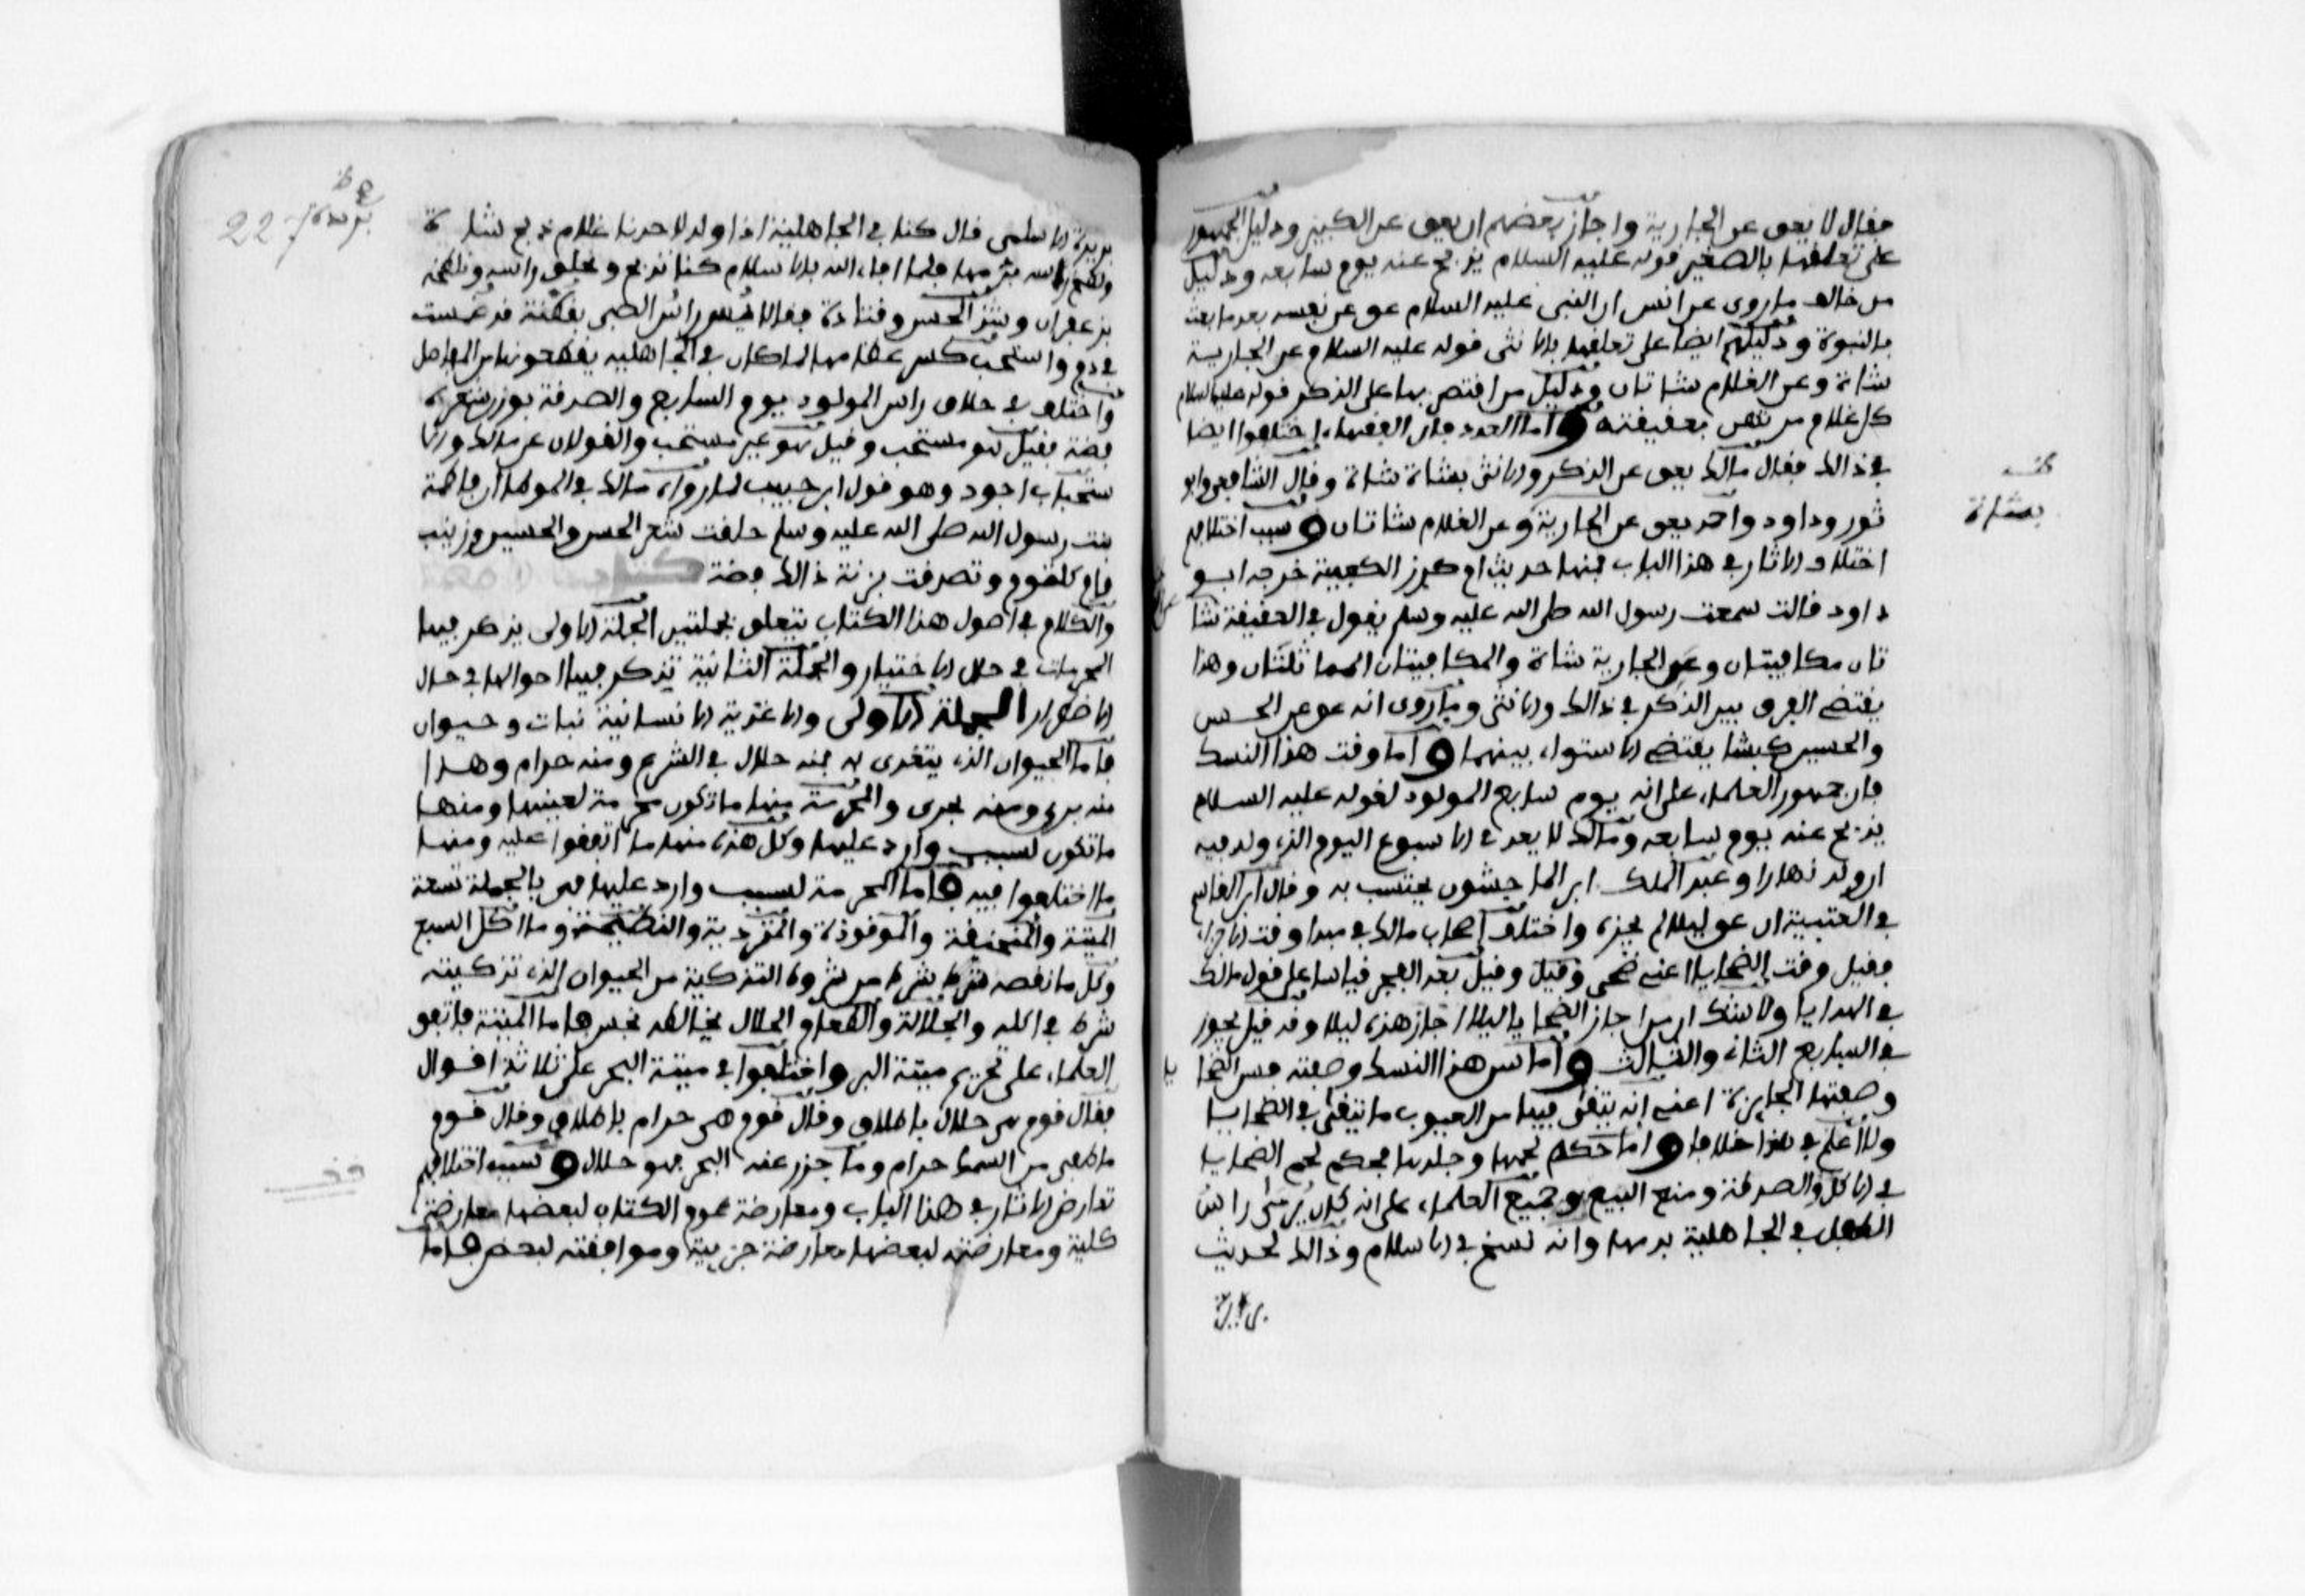 فقال لا يعق عن الجارية واجاز بعضهم ان يعق عن الكبير ودليل الجمهور
على تعلقها بالصغير قوله عليه السلام يذبح عنه يوم سابعه ودليل
من خالف ما روى عن انس ان النبي عليه السلام عق عن نفسه بعد ما بعث
بالنبوة ودليلهم ايضا على تعلقها بالانثى قوله عليه السلام عن الجارية
شاة وعن الغلام شاتان ودليل من اقتصر بها على الذكر قوله عليه السلام
كل غلام مرتهن بعقيقته واما العدد فان الفقهاء اختلفوا ايضا
في ذالك فقال مالك يعق عن الذكر والانثى بشاة شاة وقال الشافعي وابو
ثور وداود واحمد يعق عن الجارية وعن الغلام شاتان وسبب اختلافهم
اختلاف الاثار في هذا الباب فمنها حديث ام كرز الكعبية خرجه ابو
داود قالت سمعت رسول الله صلى الله عليه وسلم يقول في العقيقة شا
تان مكافيتان وعن الجارية شاة والمكافيتان المماثلتان وهذا
يقتضي الفرق بين الذكر في ذالك والانثى وما روى انه عق عن الحسن
والحسين كبشا يقتضي الاستواء بينهما واما وقت هذا النسك
فان جمهور العلماء على انه يوم سابع المولود لقوله عليه السلام
يذبح عنه يوم سابعه ومالك لا يعد في الاسبوع اليوم الذي ولد فيه
ان ولد نهارا وعبد الملك ابن الماجشون يحتسب به وقال ابن القاسم
في العتبية ان عق ليلا لم يجزه واختلف اصحاب مالك في مبدا وقت الاجزاء
فقيل وقت الضحايا اعني ضحى وقيل وقيل بعد الفجر قياسا على قول مالك
في الهدايا ولا شك ان من اجاز الضحايا ليلا اجاز هذه ليلا وقد قيل يجوز
في السابع الثاني والثالث واما سن هذا النسك وصفته فسن الضحا يا
وصفتها الجايزة اعني انه يتقى فيها من العيوب ما يتقى في الضحايا
ولا اعلم في هذا خلافا واما حكم لحمها وجلدها فحكم لحم الضحايا
في الاكل والصدقة ومنع البيع وجميع العلماء على انه كان يدمى راس
الطفل في الجاهلية بدمها وانه نسخ في الاسلام وذالك لحديث
بشاة
بريدة
بريدة الاسلمي قال كنا في الجاهلية اذا ولد لاحدنا غلام ذبح شاة
ولطخ راسه بدمها فلما جاء الله بالاسلام كنا نذبح ونحلق راسه ونلطخه
بزعفران وشذ الحسن وقتادة فقالا يمس راس الصبي بقطنة قد غمست
في دم واستحب كسر عظامها لما كان في الجاهلية يقطعونها من المفاصل
واختلف في حلاق راس المولود يوم السابع والصدقة بوزن شعره
فضة فقيل هو مستحب وقيل هو غير مستحب والقولان عن مالك والا
ستحباب اجود وهو قول ابن حبيب لما رواه مالك في الموطا ان فاطمة
بنت رسول الله صلى الله عليه وسلم حلقت شعر الحسن والحسين وزينب
وام كلثوم وتصدقت بزنة ذالك فضة كتاب
والكلام في اصول هذا الكتاب يتعلق بجملتين الجملة الاولى يذكر فيها
المحرمات في حال الاختيار والجملة الثانية يذكر فيها احوالها في حال
الاضطرار الجملة الاولى والاغذية الانسانية نبات وحيوان
فاما الحيوان الذي يتغذى به فمنه حلال في الشرع ومنه حرام وهذا
منه بري ومنه بحرى والمحرمة منها ما تكون محرمة لعينها ومنها
ما تكون لسبب وارد عليها وكل هذه منها ما اتفقوا عليه ومنها
ما اختلفوا فيه فاما المحرمة لسبب وارد عليها فهي بالجملة تسعة
الميتة والمنخنقة والموقوذة والمتردية والنطيحة وما اكل السبع
وكل ما نقصه شرط من شروط التذكية من الحيوان الذي تذكيته
شرط في اكله والجلالة والطعام الحلال يخالطه نجس فاما الميتة فاتفق
العلماء على تحريم ميتة البر واختلفوا في ميتة البحر على ثلاثة اقوال
فقال قوم هي حلال باطلاق وقال قوم هي حرام باطلاق وقال قوم
ما طفى من السمك حرام وما جزر عنه البحر فهو حلال وسبب اختلافهم
تعارض الاثار في هذا الباب ومعارضة عموم الكتاب لبعضها معارضة
كلية ومعارضته لبعضها معارضة جزيية وموافقته لبعض فاما
بريدة
227